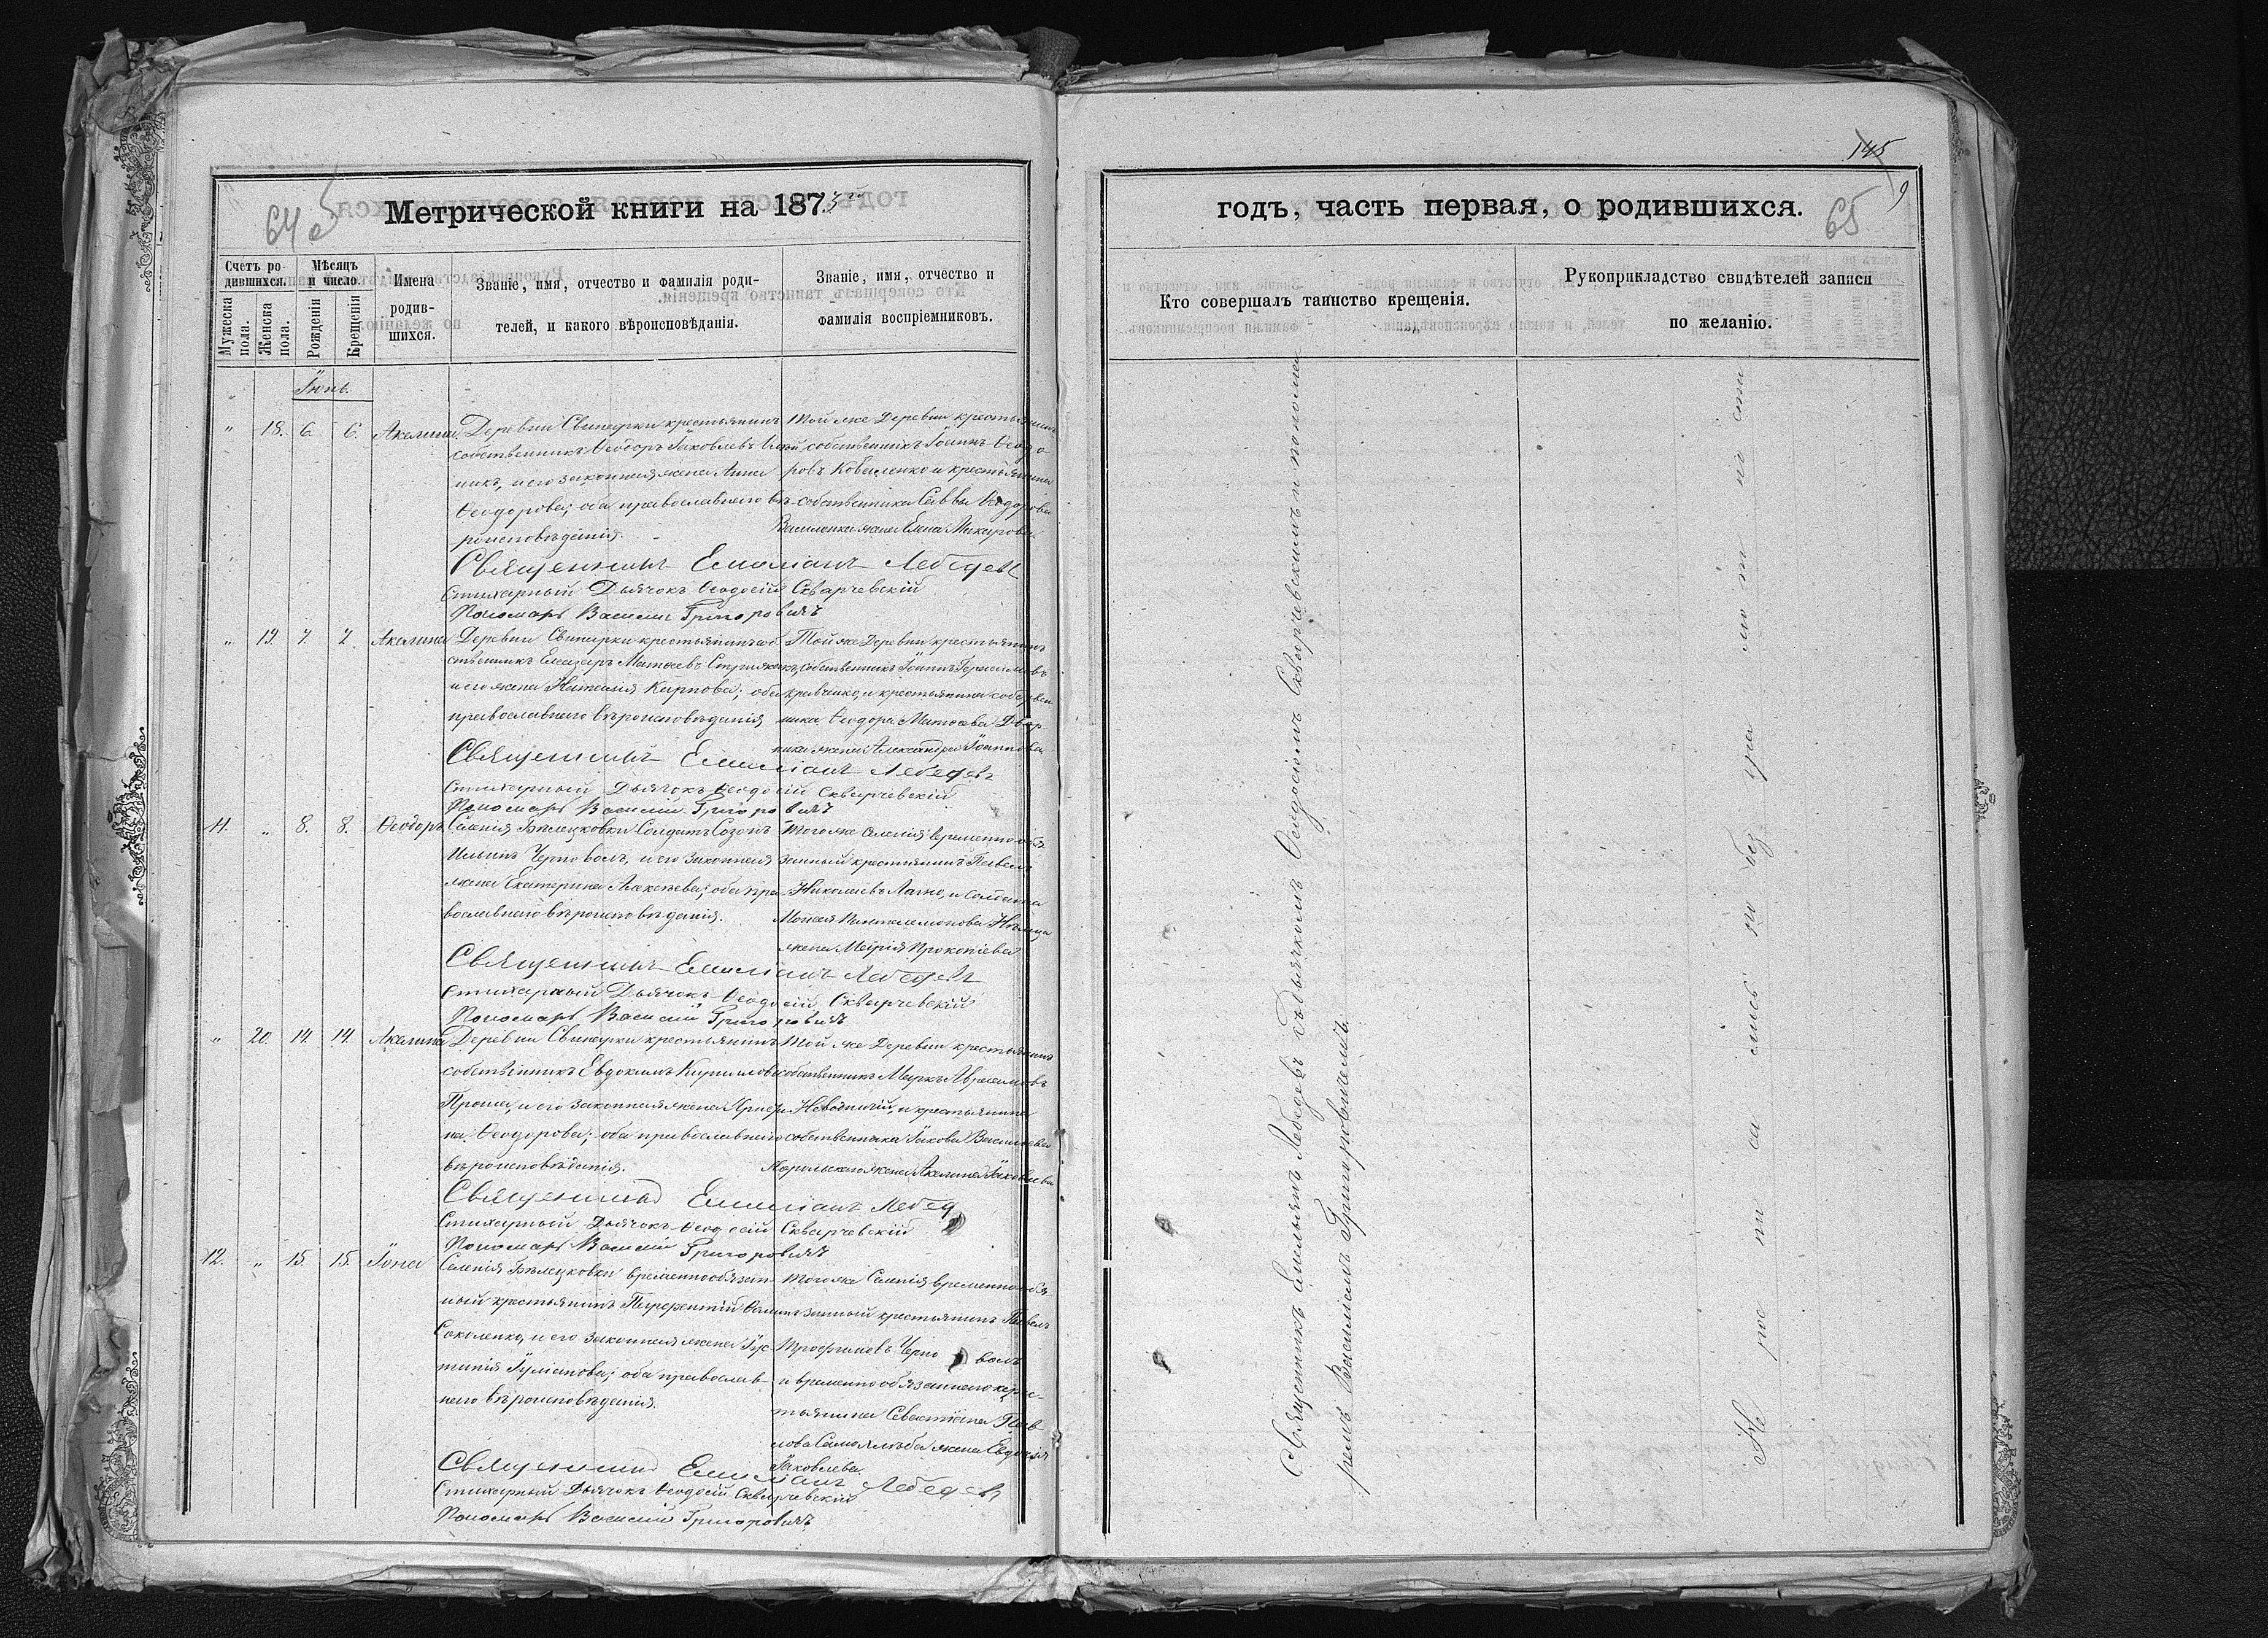 145
9
64 об
Метрической книги на 1873й
Счетъ родившихся.
Мужеска пола.
Женска пола.
Мѣсяцъ и число.
Рожденія
Крещенія
Имена родившихся.
Званіе, имя, отчество и фамилія родителей, и какого вѣроисповѣданія.
Званіе, имя, отчество и фамилія воспріемниковъ.
Іюнь.
" 18. 6. 6. Акилина.
Деревни Свинарки крестьянинъ
собственникъ Ѳеодоръ Іаковлевъ
никъ, и его законная жена Анна
Ѳеодорова; оба православнаго вѣ-
роисповѣданія.
Той же Деревни крестьянинъ
собственникъ Іоаннъ Ѳеодо-
ровъ Коваленко и крестьянина
собственника Саввы Ѳеодорова
Василенка жена Елена Макарова.
Священникъ Емиліанъ Лебедевъ
Стихарный Дьячокъ Ѳеодосій Скварчевскій
Пономарь Василій Григоровичъ
" 19. 7. 7. Акилина
Деревни Свинарки крестьянинъ соб-
ственникъ Елеазаръ Матѳеевъ Стрижакъ,
и его жена Наталія Карпова; оба
православнаго вѣроисповѣданія
Той же Деревни крестьянинъ
собственникъ Іоаннъ Герасимовъ
Кравченко, и крестьянина собствен
ника Ѳеодора Матѳеева Двор-
ника жена Александра Іоаннова
Священникъ Емиліанъ Лебедевъ
Стихарный Дьячокъ Ѳеодосій Скварчевскій
Пономарь Василій Григоровичъ
11. " 8. 8. Ѳеодоръ
Селенія Бѣлецковки Солдатъ Созонъ
Ильинъ Черноволъ, и его законная
жена Екатерина Алексѣева; оба пра-
вославнаго вѣроисповѣданія.
Того же селенія временно-обя-
занный крестьянинъ Павелъ
Николаевъ Лахно, и солдата
Моисея Пантелеимонова Нѣмца
жена Марія Прокопіева
Священникъ Емиліанъ Лебедевъ
Стихарный Дьячокъ Ѳеодосій Скварчевскій
Пономарь Василій Григоровичъ
" 20. 14. 14. Акилина
Деревни Свинарки крестьянинъ
собственникъ Евдокимъ Кирилловъ
Проша, и его законная жена Ирі-
на Ѳеодорова; оба православнаго
вѣроисповѣданія.
Той же Деревни крестьянинъ
собственникъ Маркъ Аврамовъ
Неводничій, и крестьянина
собственника Іакова Васильева
жена Акилина Іаковлева
Священникъ Емиліанъ Лебед
Стихарный Дьячокъ Ѳеодосій Скварчевскій
Пономарь Василій Григоровичъ
12. " 15. 15. Іона
Селенія Бѣлецковки временнообязан-
ный крестьянинъ Терентій
Соколенко, и его законная жена Іус-
тинія Іуліанова; оба православ-
наго вѣроисповѣданія.
Того же Селенія временно-обя-
занный крестьянинъ Павелъ
Трофимовъ Черноволъ
и временно обязаннаго кре-
стьянина Севастіана Пав-
лова жена Евдокія
Іаковлева.
Священникъ Емиліанъ Лебедевъ
Стихарный Дьячокъ Ѳеодосій Скварчевскій
Пономарь Василій Григоровичъ
годъ, часть первая, о родившихся.
65
Кто совершалъ таинство крещенія.
Рукоприкладство свидѣтелей записи по желанію.
Священникъ Емильянъ Лебедевъ съ дьячкомъ Ѳеодосіемъ Скварчевскимъ и понома-
ремъ Василіемъ Григоровичемъ.